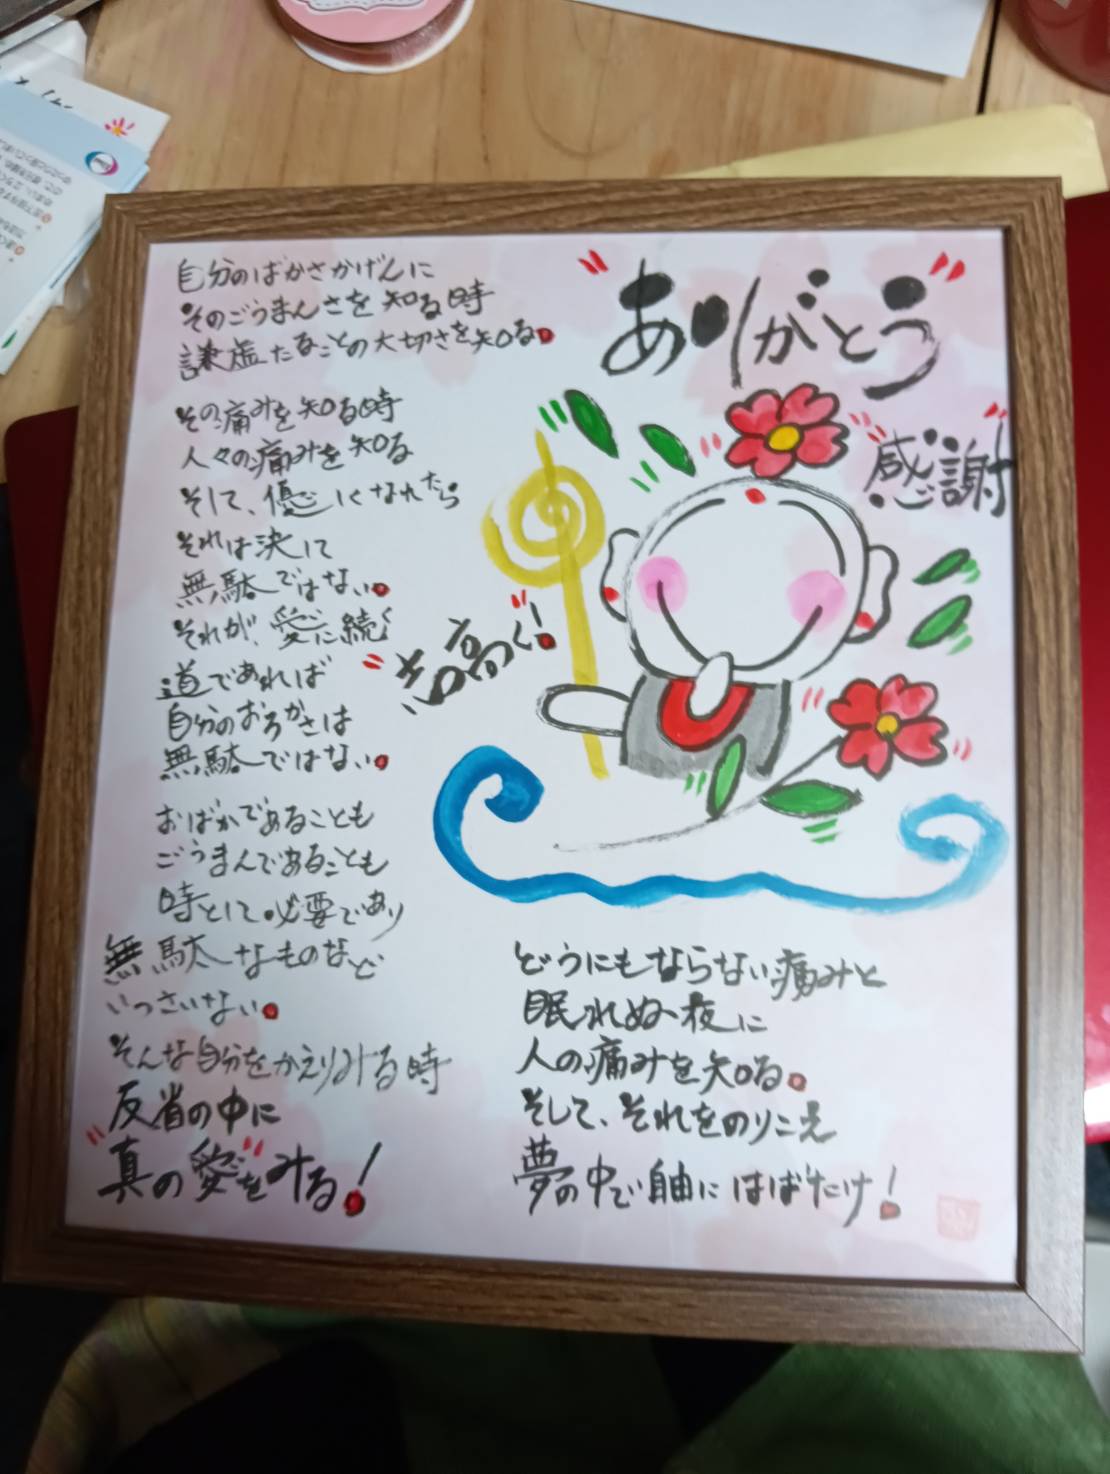 ありがとう
感謝
志高く!
自分のばかさかげんに
そのごうまんさを知る時
謙虚たることの大切さを知る。
その痛みを知る時
人々の痛みを知る
そして、優しくなれたら
それは決して
無駄ではない。
それが、愛に続く
道であれば
自分のおろかさは
無駄ではない。
おばかであることも
ごうまんであることも
時として必要であり
無駄なものなど
いっさいない。
そんな自分をかえりみる時
反省の中に
真の愛をみる!
どうにもならない痛みと
眠れぬ夜に
人の痛みを知る。
そして、それをのりこえ
夢の中で自由にはばたけ!